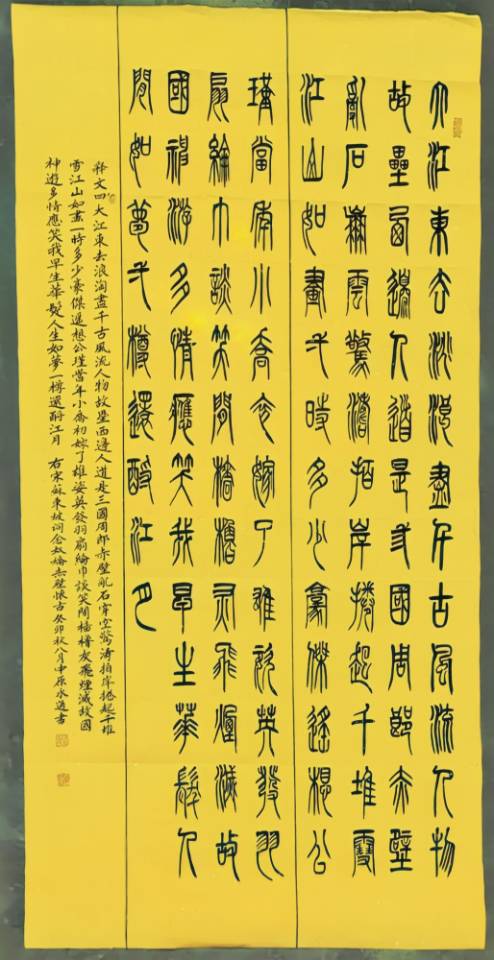 大江東去浪淘盡千古風流人物
故壘西邊人道是三國周郎赤壁
亂石崩雲驚濤拍岸捲起千堆雪
江山如畫一時多少豪傑遙想公
瑾當年小喬初嫁了雄姿英發羽
扇綸巾談笑間檣櫓灰飛煙滅故
國神游多情應笑我早生華髮人
間如夢一樽還酹江月
釋文曰大江東去浪淘盡千古風流人物故壘西邊人道是三國周郎赤壁亂石穿空驚濤拍岸捲起千堆
雪江山如畫一時多少豪傑遙想公瑾當年小喬初嫁了雄姿英發羽扇綸巾談笑間檣櫓灰飛煙滅故國
神遊多情應笑我早生華髮人生如夢一樽還酹江月 右宋蘇東坡詞念奴嬌赤壁懷古癸卯秋八月中原水逸書